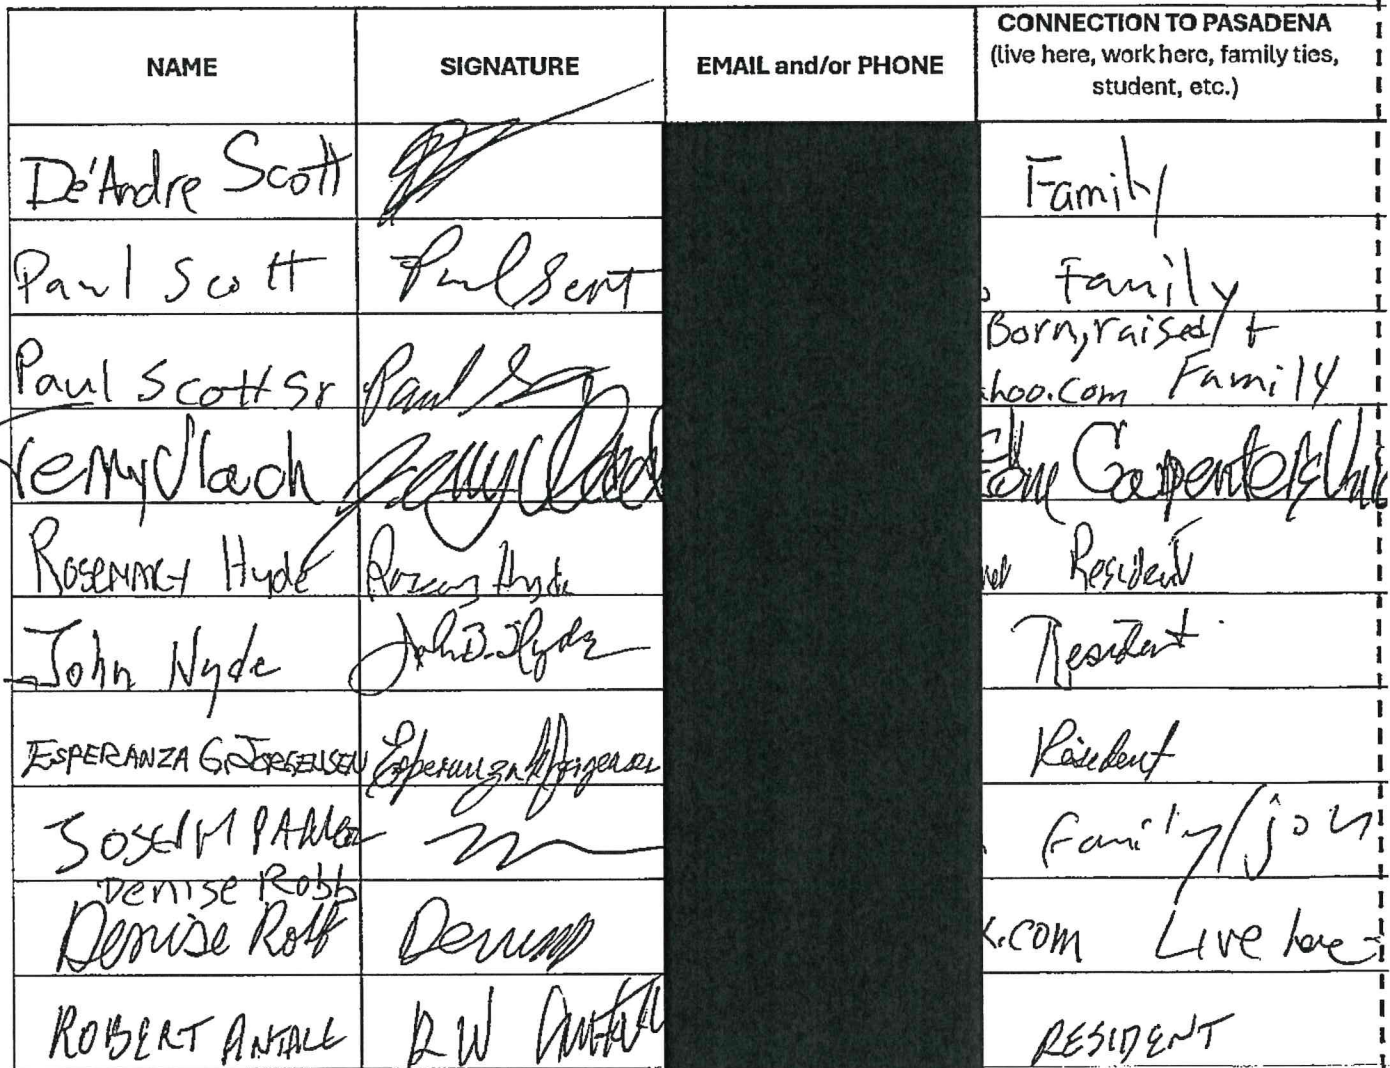 NAME SIGNATURE EMAIL and/or PHONE CONNECTION TO PASADENA
(live here, work here, family ties,
student, etc.)
De'Andre Scott Family
Paul Scott Paul Scott Family
Born, raised/ +
Paul Scott Sr Paul hoo.com Family
Jerry Vlach Jerry Carpenters
Rosemary Hyde Rosemary Hyde Resident
John Hyde John B. Hyde Resident
ESPERANZA G. JORGENSEN Esperanza Jorgensen Resident
JOSEPH Family/
Denise Robb
Denise Robb .com Live here
ROBERT RW RESIDENT